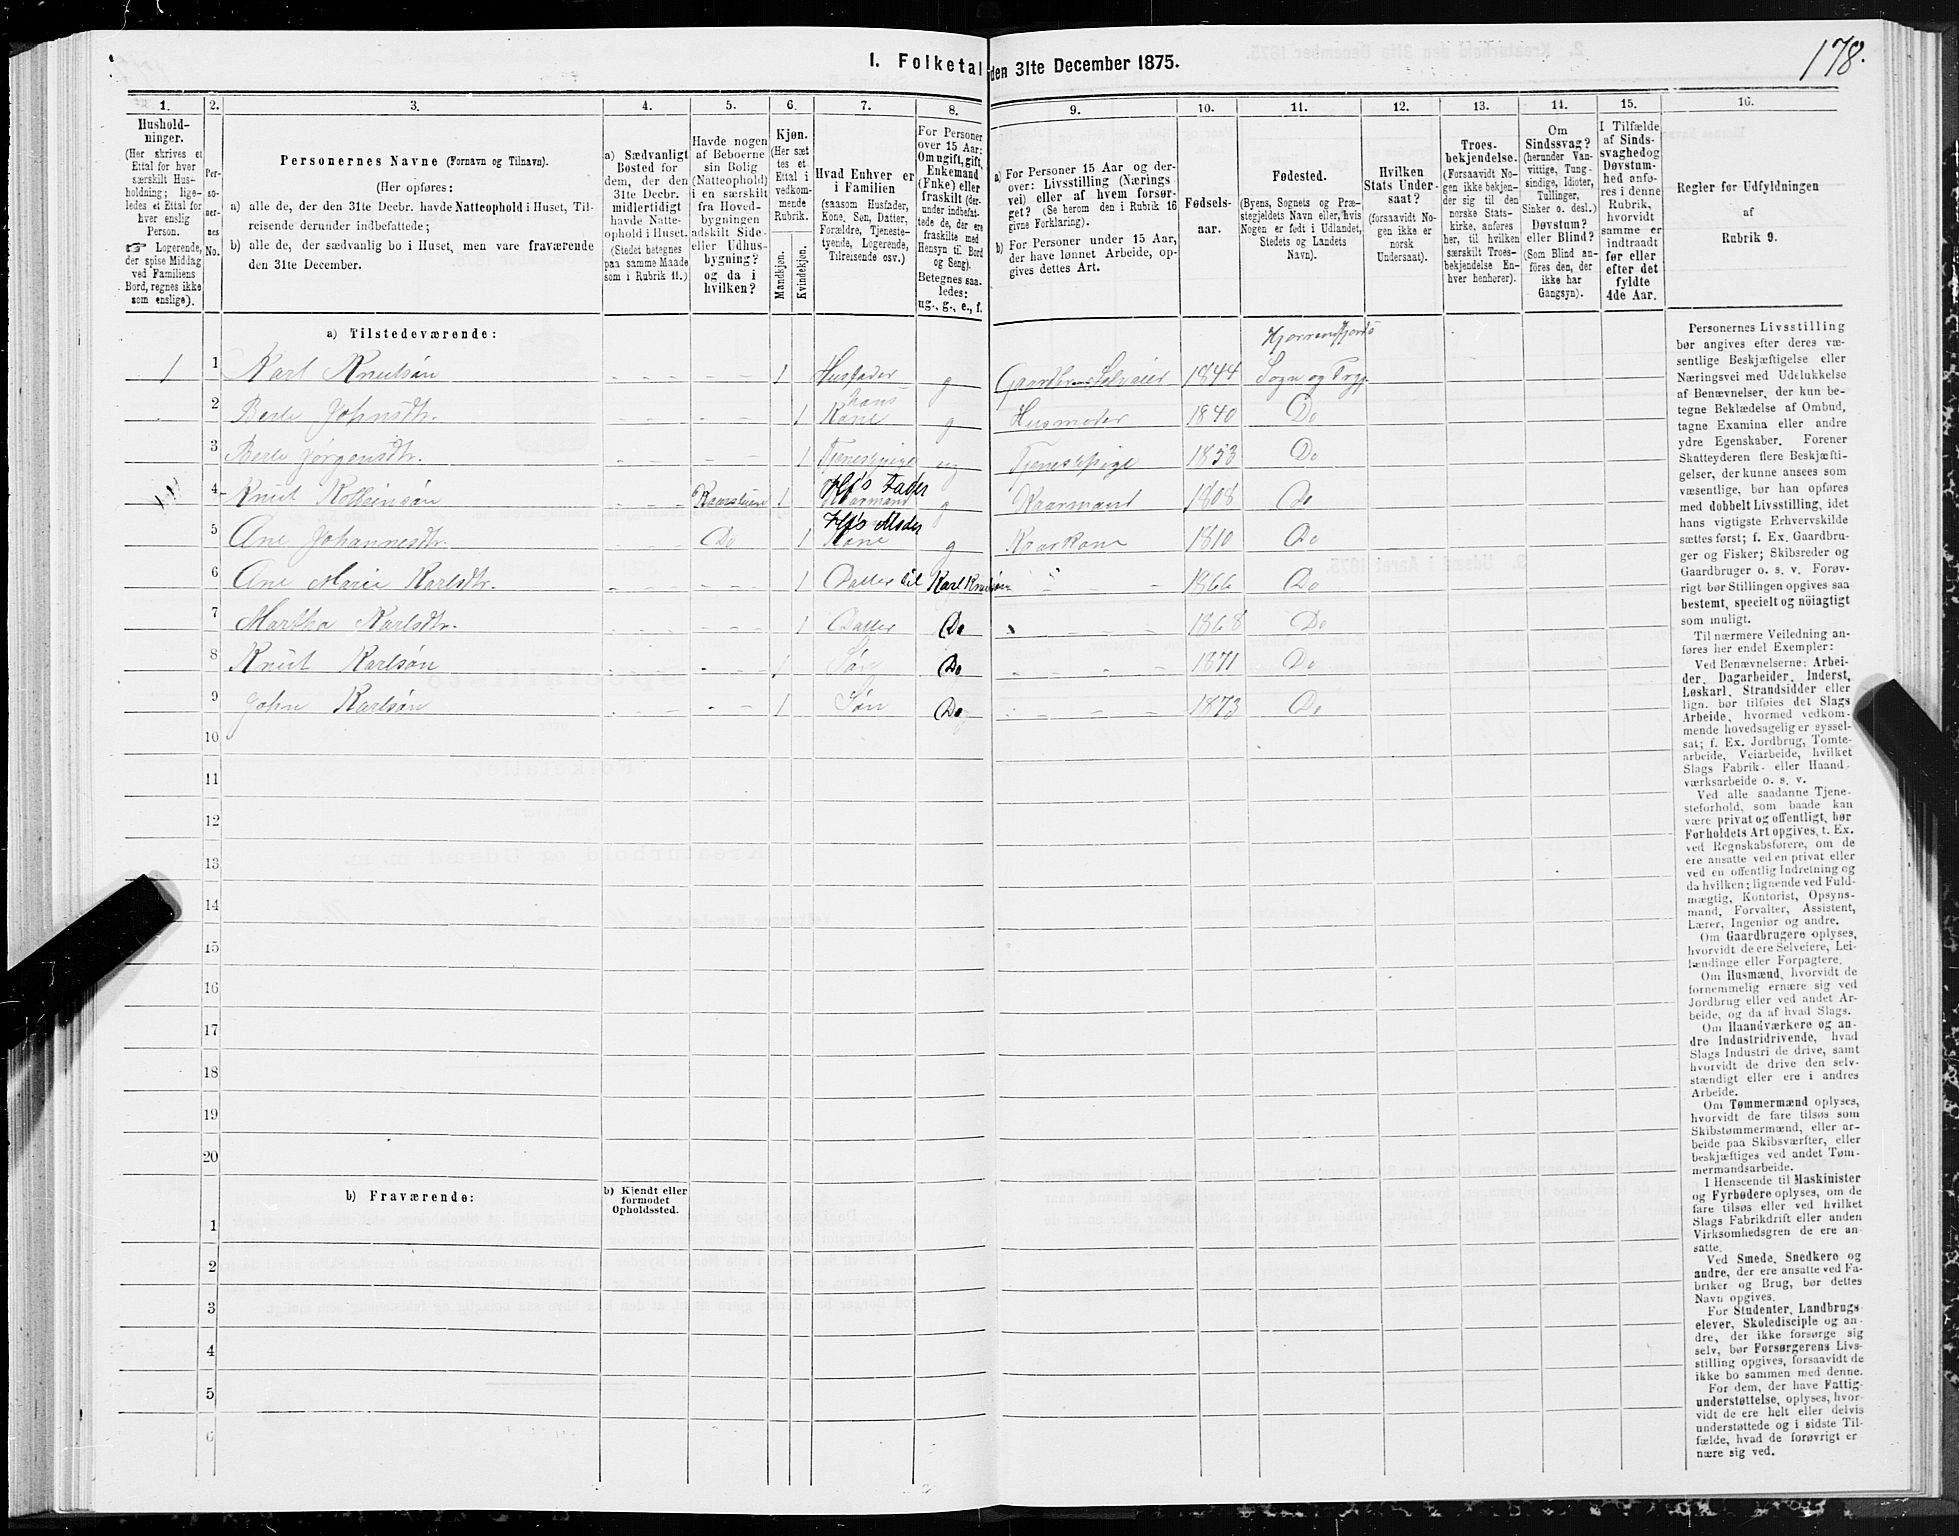 178.
I. Folketal den 31te December 1875.
1. 2. 3. 4. 5. 6. 7. 8. 9. 10. 11. 12. 13. 14. 15. 16.
Hushold-
ninger.
(Her skrives et
Ettal for hver
særskilt Hus-
holdning; lige-
ledes et Ettal for
hver enslig
Person.
☞ Logerende,
der spise Middag
ved Familiens
Bord, regnes ikke
som enslige).
Per-
so-
ner-
nes
No.
Personernes Navne (Fornavn og Tilnavn).
(Her opføres:
a) alle de, der den 31te Decbr. havde Natteophold i Huset, Til-
reisende derunder indbefattede;
b) alle de, der sædvanlig bo i Huset, men vare fraværende
den 31te December.
a) Sædvanligt
Bosted for
dem, der den
31te Decbr.
midlertidigt
havde Natte-
ophold i Huset.
(Stedet betegnes
paa samme Maade
som i Rubrik 11.)
Havde nogen
af Beboerne
sin Bolig
(Natteophold)
i en særskilt
fra Hoved-
bygningen
adskilt Side-
eller Udhus-
bygning?
og da i
hvilken?
Kjøn.
(Her sæt-
tes et
Ettal i
vedkom-
mende
Rubrik.
Mandkjøn.
Kvindekjøn.
Hvad Enhver er
i Familien
(saasom Husfader,
Kone, Søn, Datter,
Forældre, Tjeneste-
tyende, Logerende,
Tilreisende osv.)
For Personer
over 15 Aar:
Om ugift, gift,
Enkemand
(Enke) eller
fraskilt (der-
under indbefat-
tede de, der ere
fraskilte med
Hensyn til Bord
og Seng).
Betegnes saa-
ledes:
ug., g., e., f.
a) For Personer 15 Aar og der-
over: Livsstilling (Nærings
vei) eller af hvem forsør-
get? (Se herom den i Rubrik 16
givne Forklaring).
b) For Personer under 15 Aar,
der have lønnet Arbeide, op-
gives dettes Art.
Fødsels-
aar.
Fødested.
(Byens, Sognets og Præ-
stegjeldets Navn eller, hvis
Nogen er født i Udlandet,
Stedets og Landets
Navn).
Hvilken
Stats Under-
saat?
(forsaavidt No-
gen ikke er
norsk
Undersaat).
Troes-
bekjendelse.
(Forsaavidt No-
gen ikke bekjen-
der sig til den
norske Stats-
kirke, anføres
her, til hvilken
særskilt Troes-
bekjendelse En-
hver henhører).
Om
Sindssvag?
(herunder Van-
vittige, Tung-
sindige, Idioter,
Tullinger,
Sinker o. desl.)
Døvstum?
eller Blind?
(Som Blind an-
føres den, der
ikke har
Gangsyn).
I Tilfælde
af Sinds-
svaghed og
Døvstum-
hed anfø-
res i denne
Rubrik,
hvorvidt
samme er
indtraadt
før eller
efter det
fyldte
4de Aar.
Regler for Udfyldningen
af
Rubrik 9.
a) Tilstedeværende:
1 1 Karl Knutsøn 1 Husfader g Gaardbr. Selveier 1844 Sogn og Prgj.
2 Berte Johnsdtr. 1 hans Kone g Husmoder 1840 Do
3 Berte Jørgensdtr. 1 Tjenestepige ug Tjenestepige 1853 Do
4 Knut Kolbeinsøn 1 Hf's Fader Kaarmand g Kaarmand 1808 Do
5 Ane Johannesdtr. Do 1 Hf's Moder Kone g Kaarkone 1810 Do
6 Ane Marie Karlsdtr. 1 Datter til Karl Knutsøn 1866 Do
7 Martha Karlsdtr. 1 Datter Do 1868 Do
8 Knut Karlsøn 1 Søn Do 1871 Do
9 John Karlsøn 1 Søn Do 1873 Do
10
11
12
13
14
15
16
17
18
19
20
b) Fraværende:
b) Kjendt eller
formodet
Opholdssted.
1
2
3
4
5
6
Personernes Livsstilling
bør angives efter deres væ-
sentlige Beskjæftigelse eller
Næringsvei med Udelukkelse
af Benævnelser, der kun be-
tegne Beklædelse af Ombud,
tagne Examina eller andre
ydre Egenskaber. Forener
Skatteyderen flere Beskjæfti-
gelser, der kunne ansees som
væsentlige, bør han opføres
med dobbelt Livsstilling, idet
hans vigtigste Erhvervskilde
sættes først; f. Ex. Gaardbru-
ger og Fisker; Skibsreder og
Gaardbruger o. s. v. Forøv-
rigt bør Stillingen opgives saa
bestemt, specielt og nöiagtigt
som muligt.
Til nærmere Veiledning an-
føres her endel Exempler:
Ved Benævnelserne: Arbei-
der, Dagarbeider, Inderst,
Løskarl, Strandsidder eller
lign. bør tilføies det Slags
Arbeide, hvormed vedkom-
mende hovedsagelig er syssel-
sat; f. Ex. Jordbrug, Tomte-
arbeide, Veiarbeide, hvilket
Slags Fabrik- eller Haand-
værksarbeide o. s. v.
Ved alle saadanne Tjene-
steforhold, som baade kan
være privat og offentligt, bør
Forholdets Art opgives, t. Ex.
ved Regnskabsførere, om de
ere ansatte ved en privat eller
ved en offentlig Indretning og
da hvilken; lignende ved Fuld-
mægtig, Kontorist, Opsyns-
mand, Forvalter, Assistent,
Lærer, Ingeniør og andre.
Om Gaardbrugere oplyses,
hvorvidt de ere Selveiere, Lei-
lændinge eller Forpagtere.
Om Husmænd, hvorvidt de
fornemmelig ernære sig ved
Jordbrug eller ved andet Ar-
beide, og da af hvad Slags.
Om Haandværkere og an-
dre Industridrivende, hvad
Slags Industri de drive, samt
hvorvidt de drive den selv-
stændigt eller ere i andres
Arbeide.
Om Tømmermænd oplyses,
hvorvidt de fare tilsøs som
Skibstømmermænd, eller ar-
beide paa Skibsværfter, eller
beskjæftiges ved andet Tøm-
mermandsarbeide.
I Henseende til Maskinister
og Fyrbødere oplyses, om de
fare tilsøs eller ved hvilket
Slags Fabrikdrift eller anden
Virksomhedsgren de ere an-
satte.
Ved Smede, Snedkere og
andre, der ere ansatte ved Fa-
briker og Brug, bør dettes
Navn opgives.
For Studenter, Landbrugs-
elever, Skoledisciple og an-
dre, der ikke forsørge sig
selv, bør Forsørgerens Livs-
stilling opgives, forsaavidt de
ikke bo sammen med denne.
For dem, der have Fattig-
understøttelse, oplyses, hvor-
vidt de ere helt eller delvis
understøttede og i sidste Til-
fælde, hvad de forøvrigt er
nære sig ved.